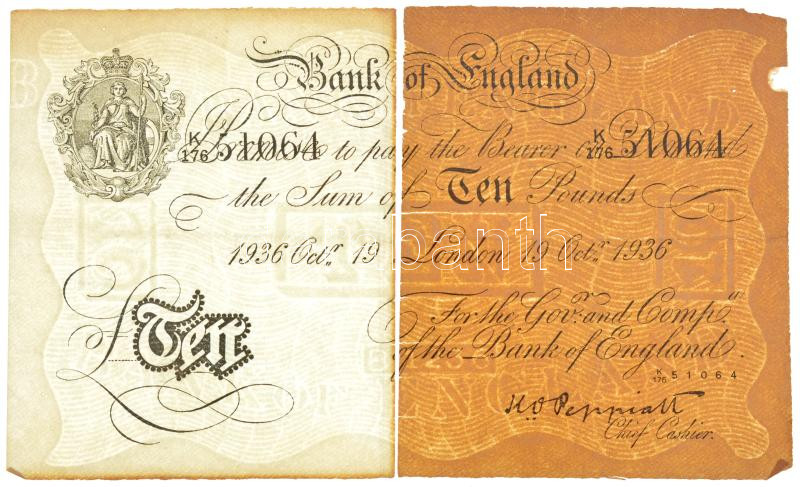 Bank of England
K/176 51064 K/176 51064
Promise to pay the Bearer on Demand
the Sum of Ten Pounds
1936 Octr. 19 London 19 Octr. 1936
For the Govr. and Compa.
of the Bank of England.
£Ten
K/176 51064
K O Peppiatt
Chief Cashier.